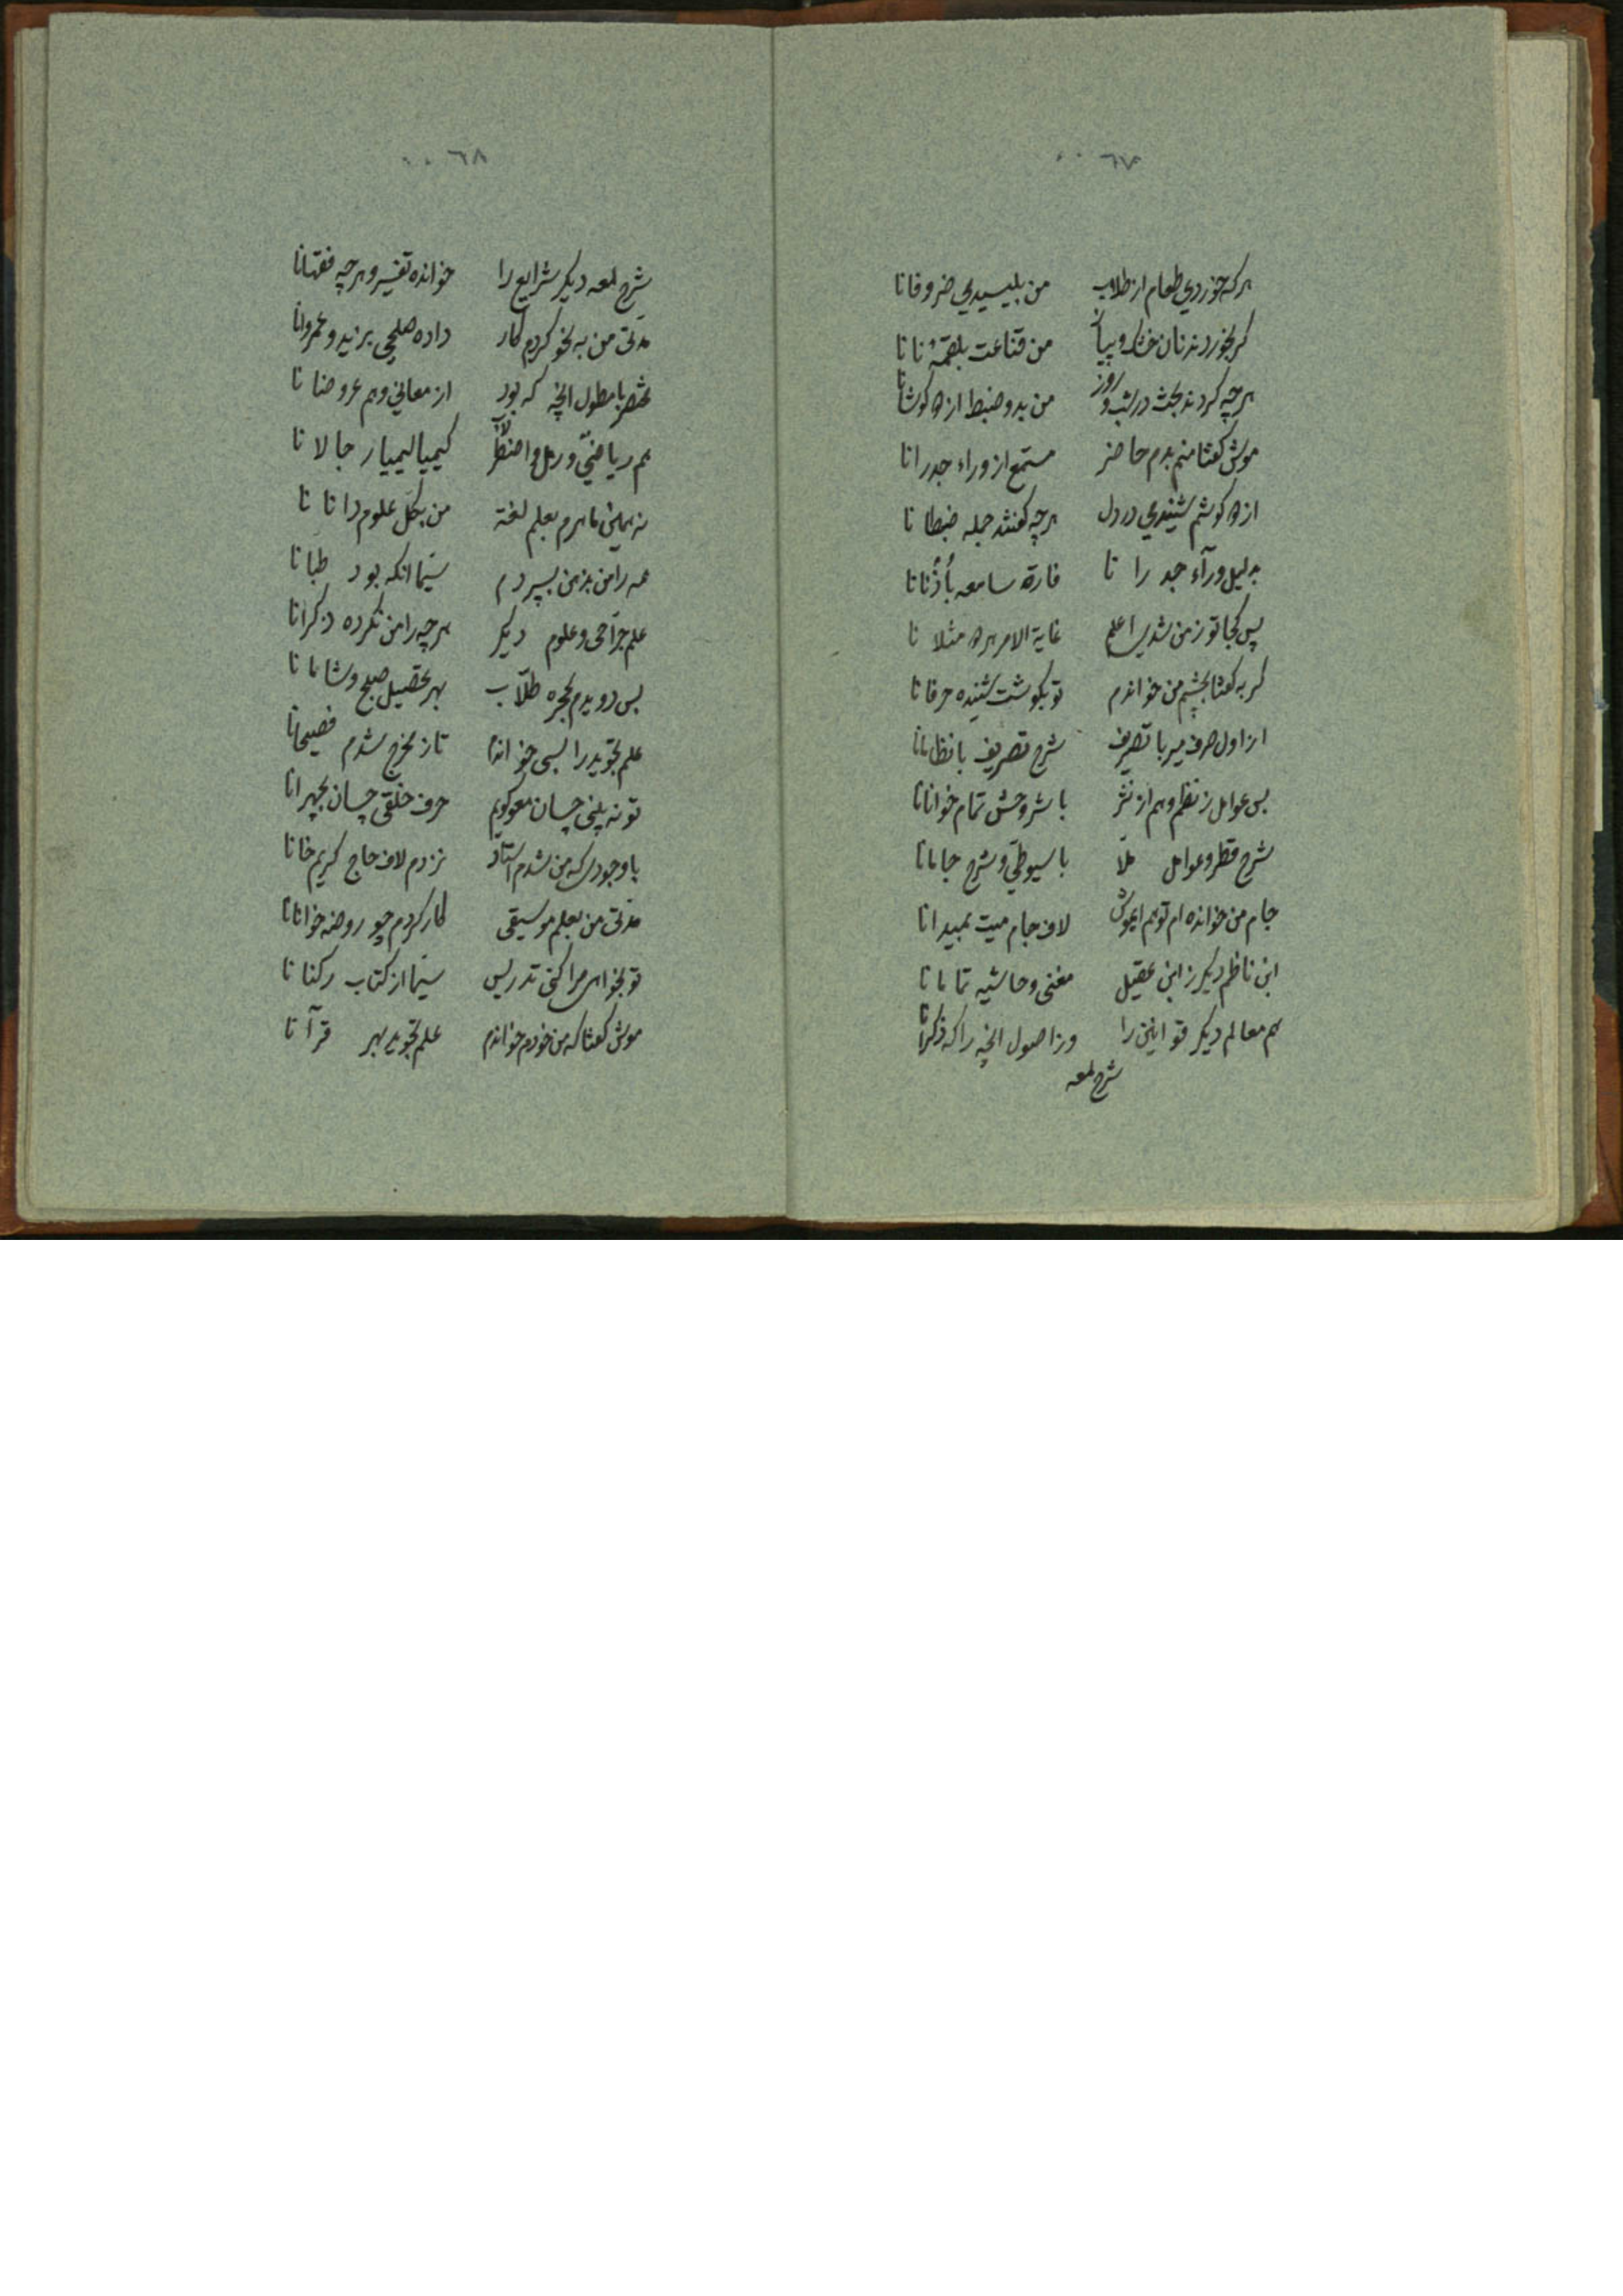 ٦٧
هر که خوردی طعام از طلاب من بلیسیدی ضروفانا
کر بخوردند نان خشک و پیاز من قناعت بلقمهٔ نانا
هرچه کردند بحث در شب و روز من بدو ضبط از ره کوشانا
موش کفتا منم بدم حاضر مستمع از وراء جدرانا
از ره کوشم شنیدی در دل هرچه کفتند جمله ضبطانا
بدلیل ورآء جدرانا فارة سامعه بأُذُنانا
پس کجا تو زمن شدی اعلم غایة الامر مثلا نا
کربه کفتا بچشم من خواندم تو بکوشت شنیده حرفانا
از اول صرف میر با تصریف شرح تصریف با نظامانا
بس عوامل ز نظم و هم از نثر با شروحش تمام خوانانا
شرح قطر و عوامل ملّا با سیوطی و شرح جامانا
جام من خوانده ام تو هم ایموش لاف جام میت بمیدانا
ابن ناظم دیکر ز ابن عقیل مغنی و حاشیه تمامانا
هم معالم دیکر قوانین را وز اصول انچه را که ذکرانا
شرح لمعه
٦٨
شرح لمعه دیکر شرایع را خوانده تفسیر و هرچه فقهانا
مدّتی من به نحو کردم کار داده صلحی بزید و عمروانا
مختصر با مطول انچه که بود از معانی و هم عروضانا
هم ریاضی و رمل و اصطرلاب کیمیا لیمیا رجالانا
نه همین ماهرم بعلم لغة من بکل علوم دانانا
همه را من بذهن بسپردم سیّما انکه بود طبانا
علم جرّاحی و علوم دیکر هرچه را من نکرده ذکرانا
بس دویدم بحجره طلّاب بهر تحصیل صبح و شامانا
علم تجوید را بسی خواندم تا ز مخرج شدم فصیحانا
تو نه بینی چسان معو کویم حرف حلقی چسان بجهرانا
با وجودی که من شدم استاد نزدم لاف حاج کریم خانا
مدّتی من بعلم موسیقی کار کردم چو روضه خوانانا
تو بخواهی مرا کنی تدریس سیّما از کتاب رکنانا
موش کفتا که من خودم خواندم علم تجوید بهر قرآنا